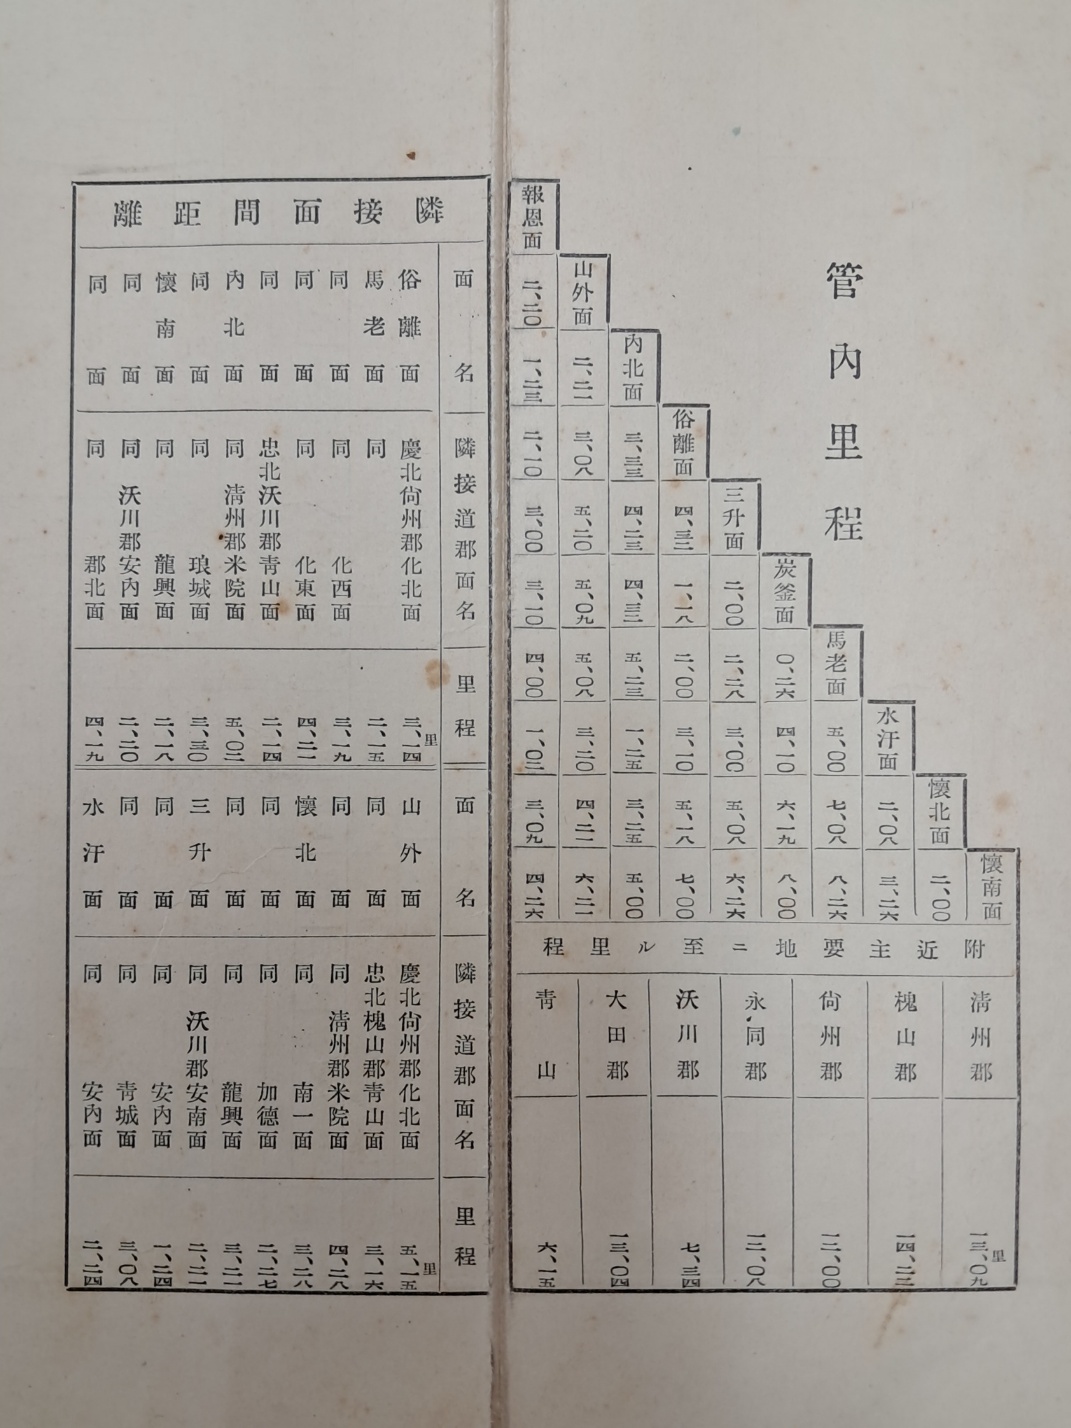 管內里程
報恩面
二、二〇 山外面
一、二三 二、二一 內北面
二、一〇 三、〇八 三、三三 俗離面
三、〇〇 五、二〇 四、二三 四、三二 三升面
三、一〇 五、〇九 四、三二 一、一八 二、〇〇 炭釜面
四、〇〇 五、〇八 五、二三 二、〇〇 二、二八 〇、二六 馬老面
一、〇二 三、二〇 一、二五 三、一〇 三、〇〇 四、一〇 五、〇〇 水汗面
三、〇九 四、二一 三、二五 五、一八 五、〇八 六、一九 七、〇八 二、〇八 懷北面
四、二六 六、二一 五、〇〇 七、〇〇 六、二六 八、〇〇 八、二六 三、二六 二、〇〇 懷南面
附近主要地ニ至ル里程
淸州郡 一三、〇九里
槐山郡 一四、二三
尙州郡 一二、〇〇
永同郡 一二、〇八
沃川郡 七、三四
大田郡 一三、〇四
靑山 六、一五
隣接面間距離
面名 隣接道郡面名 里程
俗離面 慶北尙州郡化北面 三、一四里
馬老面 同 面 二、一五
同面 同 化西面 三、一九
同面 同 化東面 四、二一
同面 忠北沃川郡靑山面 二、一四
內北面 同 淸州郡米院面 五、〇二
同面 同 琅城面 三、三〇
懷南面 同 龍興面 二、一八
同面 同 沃川郡安內面 二、二〇
同面 同 郡北面 四、一九
面名 隣接道郡面名 里程
山外面 慶北尙州郡化北面 五、一五里
同面 忠北槐山郡靑山面 三、一六
同面 同 淸州郡米院面 四、二八
懷北面 同 南一面 三、二八
同面 同 加德面 二、二七
同面 同 龍興面 三、二一
三升面 同 沃川郡安南面 二、二一
同面 同 安內面 一、二四
同面 同 靑城面 三、〇八
水汗面 同 安內面 二、二四